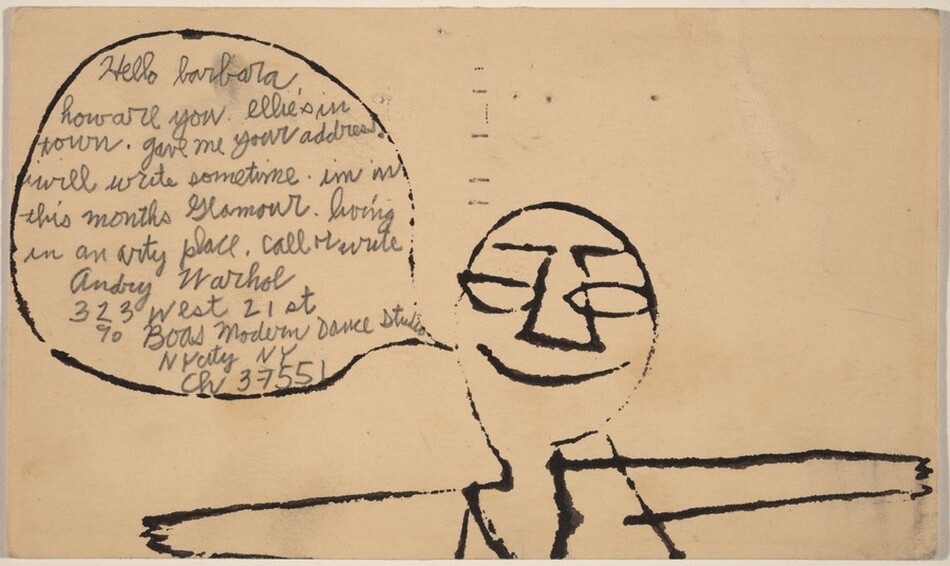 Hello barbara,
how are you. ellie's in
town. gave me your address.
will write sometime. im in
this months Glamour. living
in an arty place. call or write
Andrey Warhol
323 West 21 st
% Boas Modern Dance Studio
N Y city NY
Ch 37551